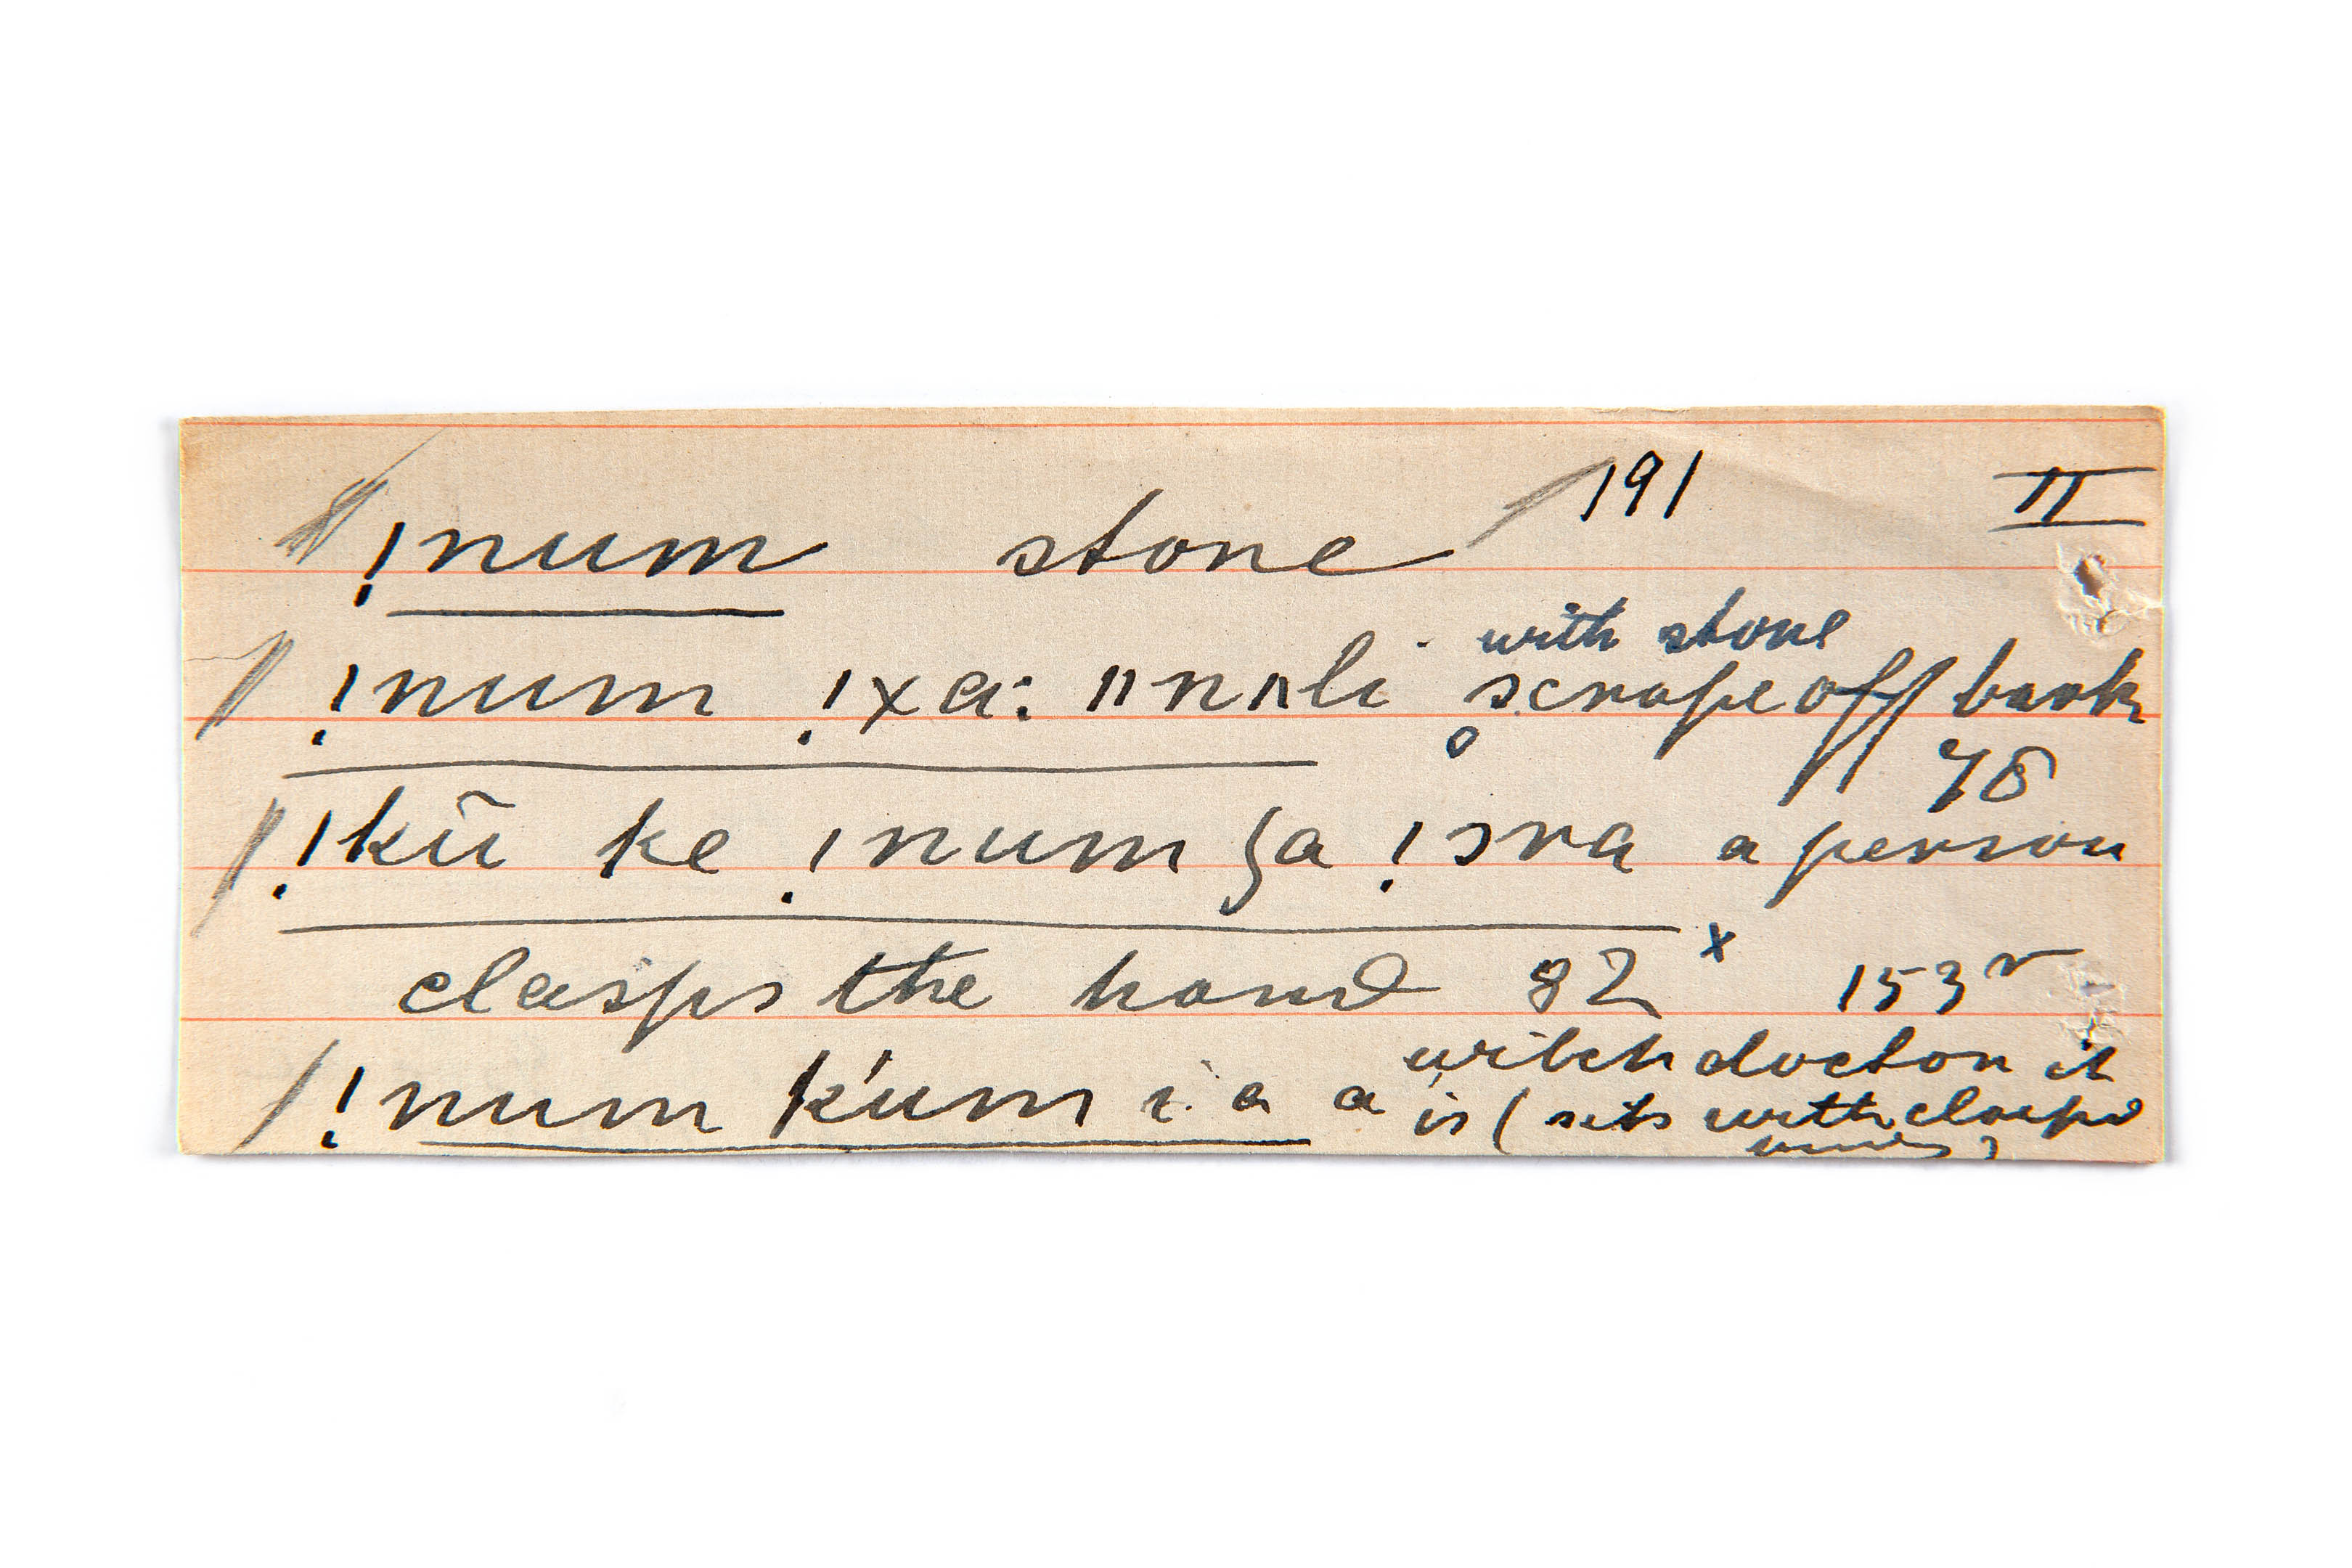 !num stone 191 II
with stone
!num !xa: ǁnʌli scrape off bark
78
!kũ ke !num ʒa !ɔra a person
clasps the hand 82 x 153 r
witch doctor it
!num k'um i a a is (sits with clasped
arms)